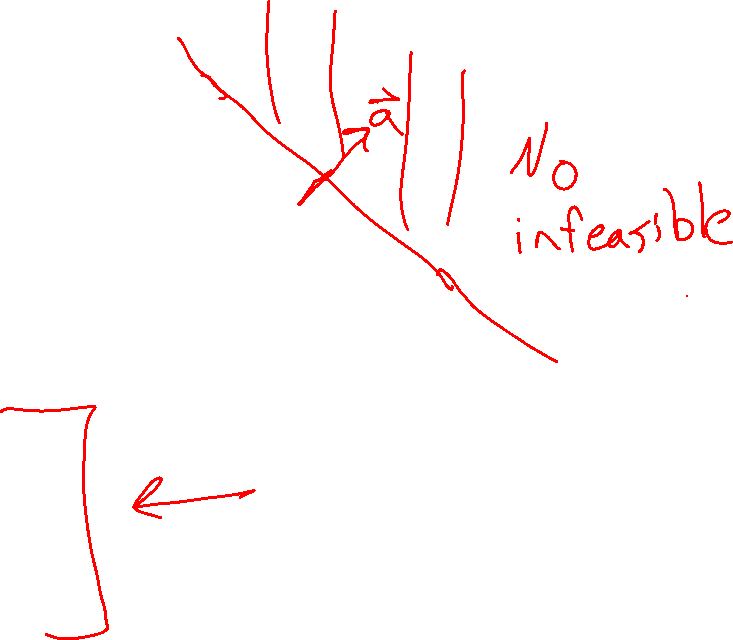 a⃗
No
infeasible